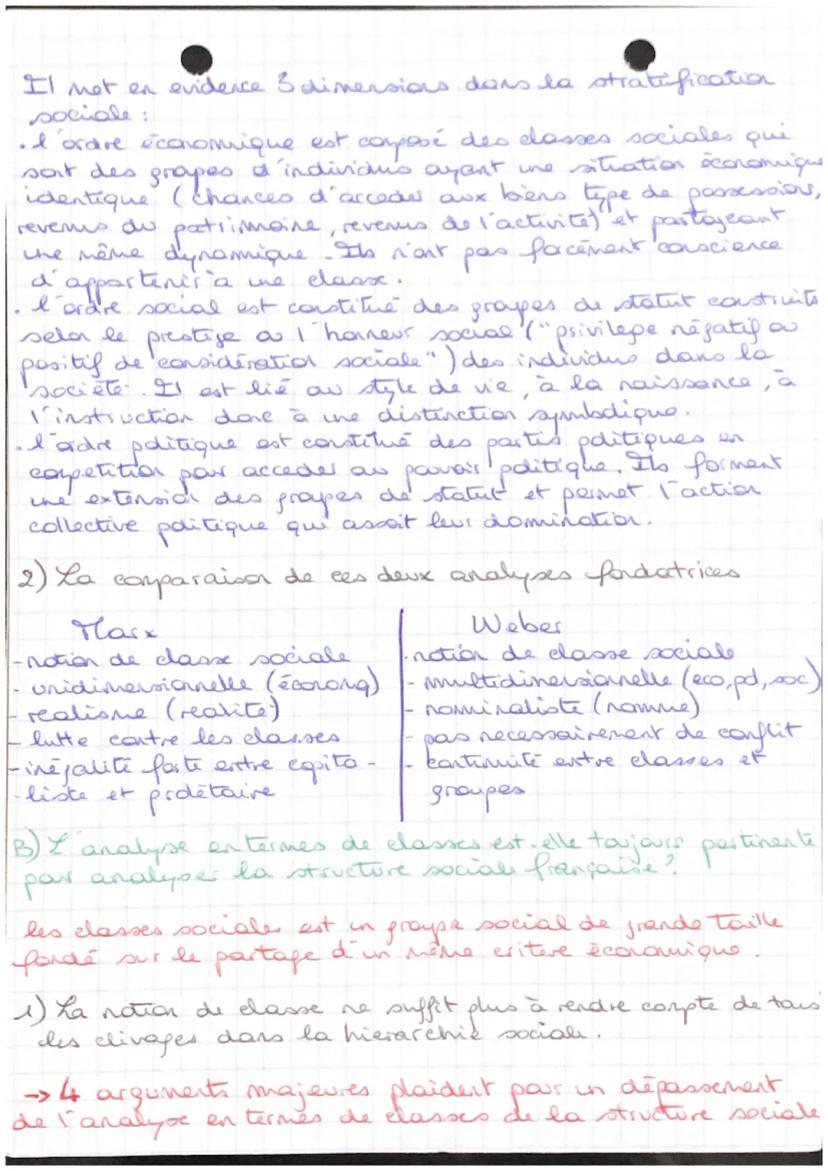 Il met en evidence 3 dimensions dans la stratification
sociale :
. l'ordre économique est composé des classes sociales qui
sont des groupes d'individus ayant une situation économique
identique (chances d'acceder aux biens type de possessions,
revenus du patrimoine, revenus de l'activité) et partageant
une même dynamique. Ils n'ont pas forcément conscience
d'appartenir à une classe.
. l'ordre social est constitué des groupes de statut construits
selon le prestige ou l'honneur social ("privilege négatif ou
positif de considération sociale") des individus dans la
société. Il est lié au style de vie, à la naissance, à
l'instruction donc à une distinction symbolique.
. l'ordre politique est constitué des partis politiques en
compétition pour acceder au pouvoir politique. Ils forment
une extension des groupes de statut et permet l'action
collective politique qui assoit leur domination.
2) La comparaison de ces deux analyses fondatrices
Marx
- notion de classe sociale
- unidimensionnelle (éconoq)
- realisme (realité)
- lutte contre les classes
- inégalité forte entre capita-
- liste et prolétaire
Weber
. notion de classe sociale
- multidimensionnelle (eco, pol, soc)
- nominaliste (nomme)
- pas necessairement de conflit
- continuité entre classes et
groupes
B) L'analyse en termes de classes est-elle toujours pertinente
pour analyser la structure sociale française ?
les classes sociales est un groupe social de grande taille
fondé sur le partage d'un même critere économique.
1) La notion de classe ne suffit plus à rendre compte de tous
les clivages dans la hierarchie sociale.
-> 4 arguments majeures plaident pour un dépassement
de l'analyse en termes de classes de la structure sociale